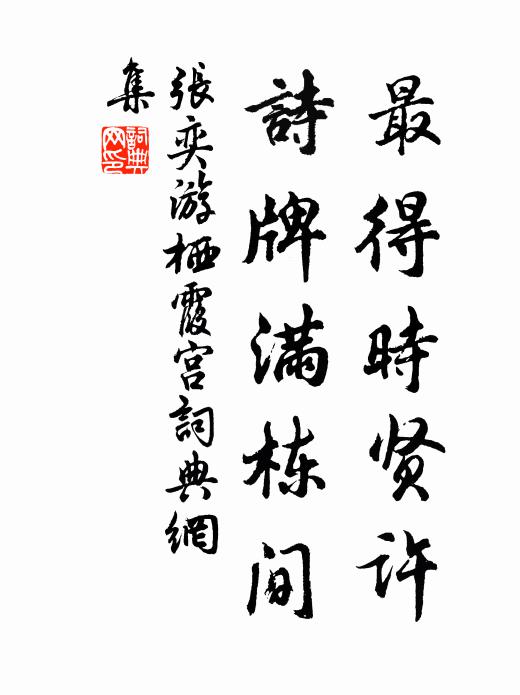 最得時贤许
詩牌满栋间
張奕游栖霞宫詞典網
集
詞典網印